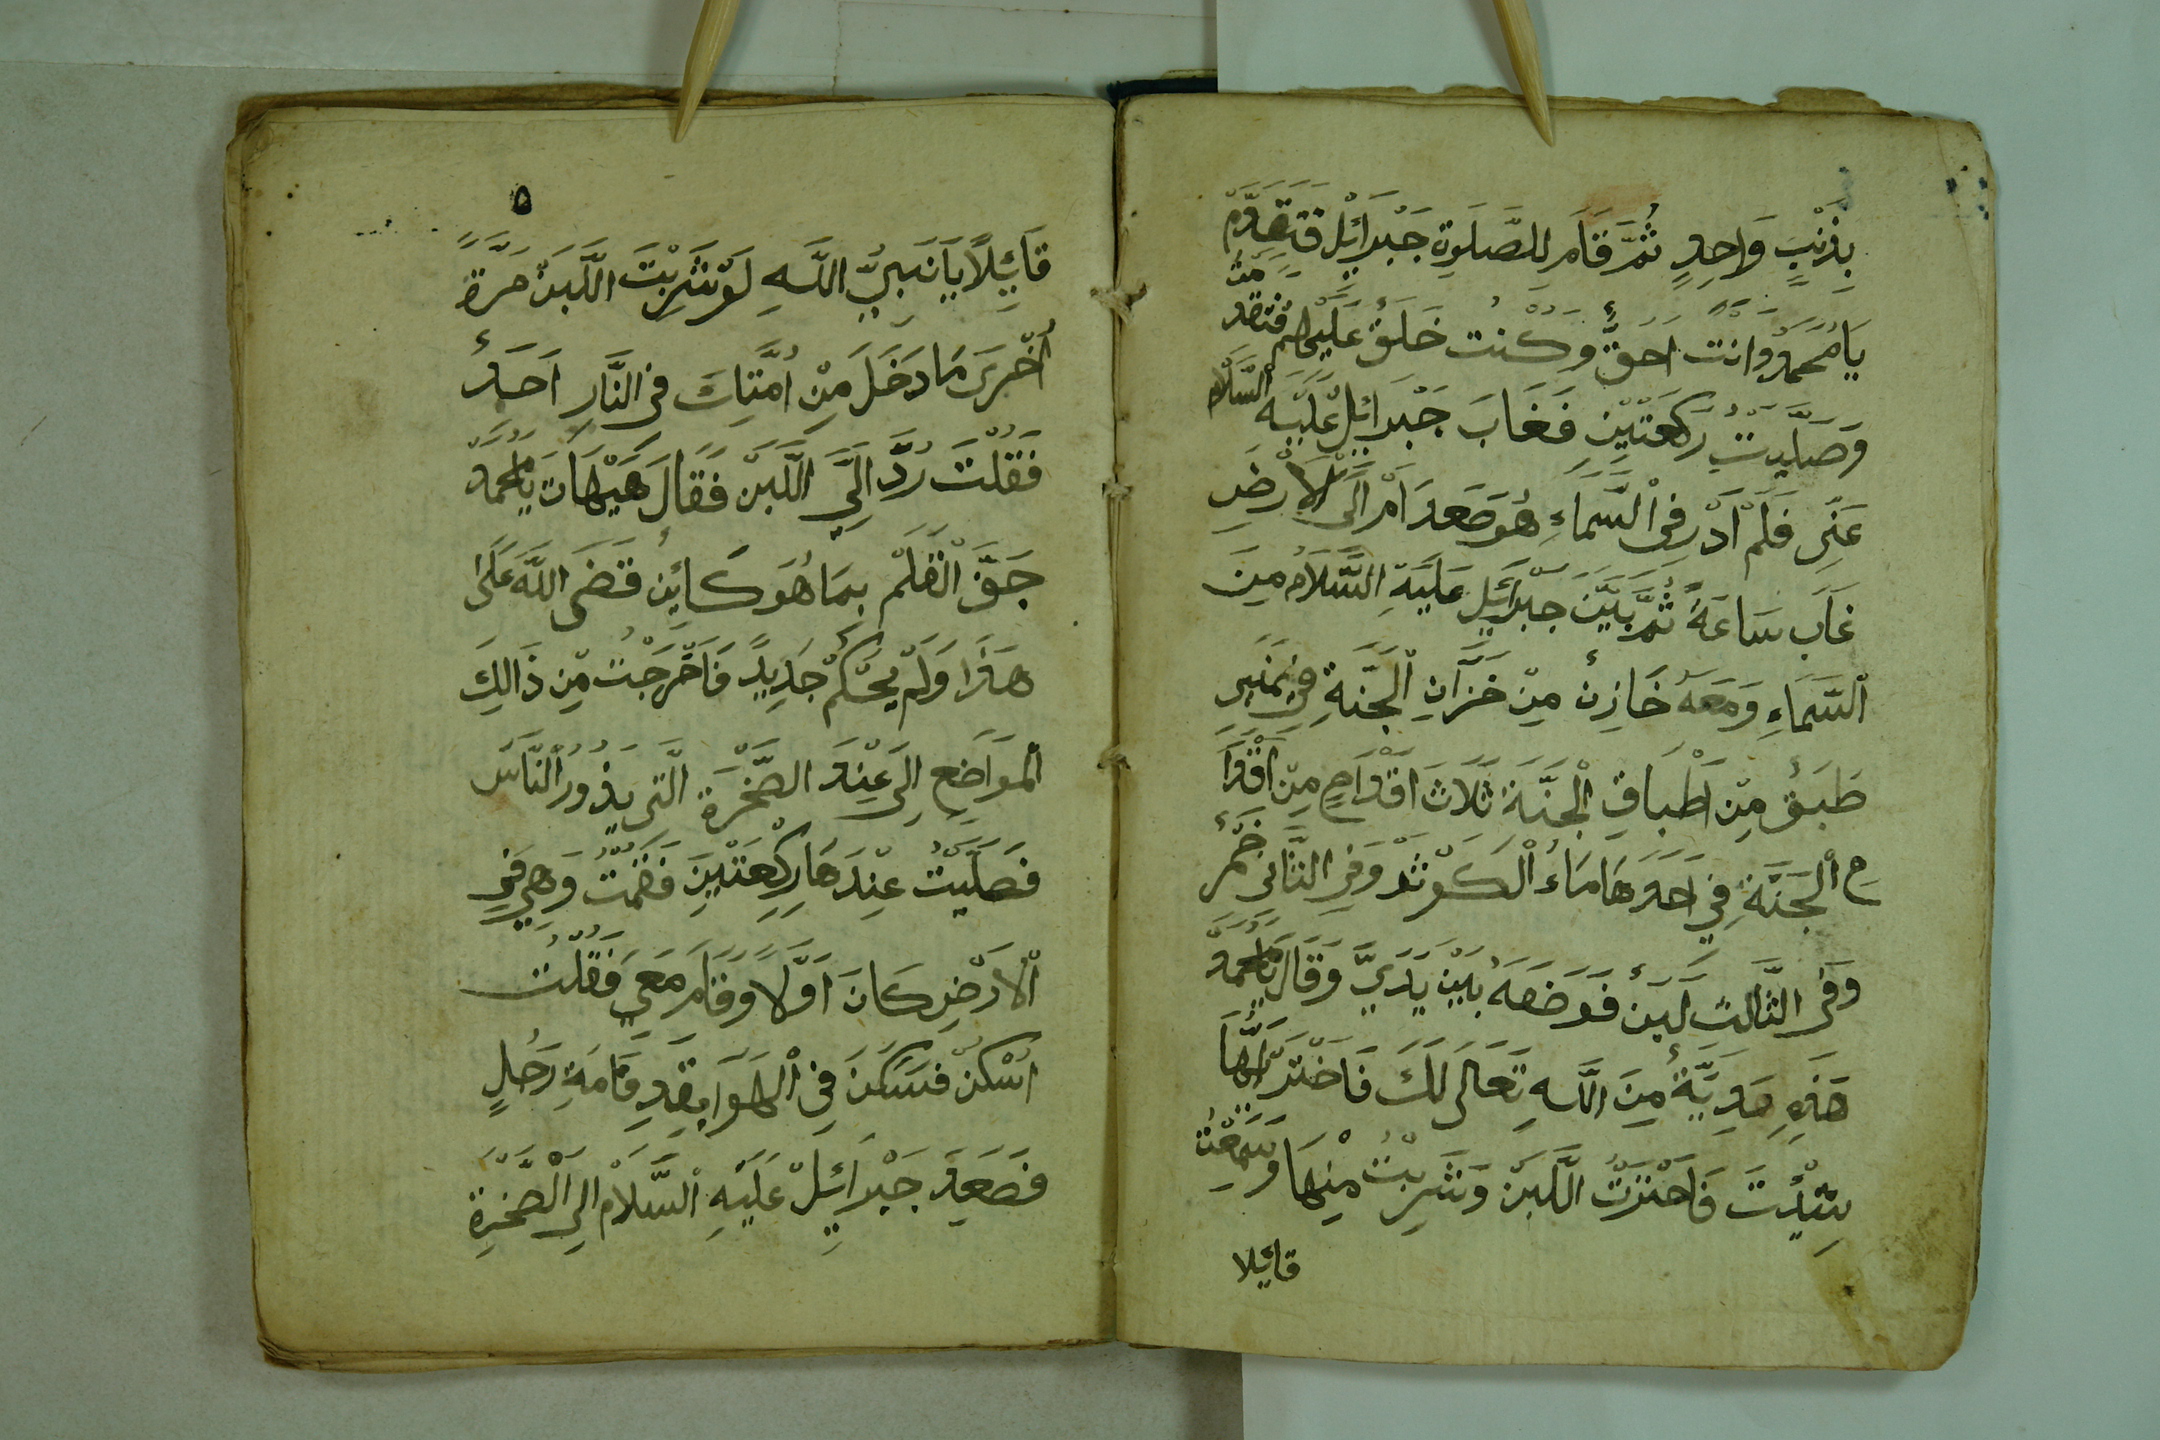 بِذَنْبٍ وَاحِدٍ ثُمَّ قَامَ لِلصَّلَوةِ جَبْرَائِلْ فَتَقَدَّمْ
يَا مُحَمَّدْ وَانْتَ اَحَقُّ وَكُنْتَ خَلَقُ عَلَيْهِمْ فتقد مت
وَصَلَّيْتُ رَكْعَتَيْنِ فَغَابَ جَبْرَائِلْ عَلَيْهِ السَّلَام
عَنِّى فَلَمْ اَدْرِ فِى السَّمَاءِ هُوَ صَعَدَ اَمْ اِلَى الْاَرْضِ
غَابَ سَاعَةً ثُمَّ بَيَّنَ جَبْرَائِلِ عَلَيْهِ السَّلَامُ مِنَ
السَّمَاءِ وَمَعَهُ خَازِنٌ مِنْ خَزَّانِ الْجَنَّةِ فِى
طَبَقٌ مِنْ اَطْبَاقِ الْجَنَّةِ ثَلَاثَ اَقْدَاحٍ مِنْ اَقْدَا
حِ الْجَنَّةِ فِي اَحَدَهَا مَاءُ الْكَوْثَرْ وَفِى الثَّانِى خَمْرٌ
وَفِى الثَّالِثَ لَبَنٌ فَوَضَعَهُ بَيْنَ يَدَيَّ وَقَالَ يَا مُحَمَّدْ
هَذِهِ هَدِيَّةٌ مِنَ اللَّهِ تَعَالَى لَكَ فَاخْتَرْ اَيُّهَا
شِئْتَ فَاخْتَرْتُ اللَّبَنْ وَشَرِبْتُ مِنْهَا وَسَمِعْتُ
قائلا
٥
قَائِلًا يَا نَبِيُّ اللَّهِ لَوْ شَرِبْتَ اللَّبَنْ مَرَّةً
اُخْرَى مَا دَخَلَ مِنْ اُمَّتِكَ فِى النَّارِ اَحَدٌ
فَقُلْتَ رُدَّ اِلَيَّ اللَّبَنْ فَقَالَ هَيْهَاتَ يَا مُحَمَّدْ
جَفَّ الْقَلَمْ بِمَا هُوَ كَائِنٌ قَضَى اللَّهُ عَلَى
هَذَا وَلَمْ يَحْكُمْ جَدِيدً فَاخْرَجْتُ مِنْ ذَالِكَ
الْمَوَاضِعِ اِلَى عِنْدَ الصَّخْرَةَ الَّتِى يَذُورُ النَّاسَ
فَصَلَّيْتُ عِنْدَهَا رَكْعَتَيْنِ فَقُمْتُ وَهِيَ فِى
الْاَرْضِ كَانَ اَوَّلًا وَقَامَ مَعَي فَقُلْتُ
اُسْكُنْ فَسَكَنَ فِى الْهَوَا بِقَدِ قَامَةِ رَجُلٍ
فَصَعَدَ جَبْرَائِلْ عَلَيْهِ السَّلَامُ اِلَى الصَّخْرَةِ